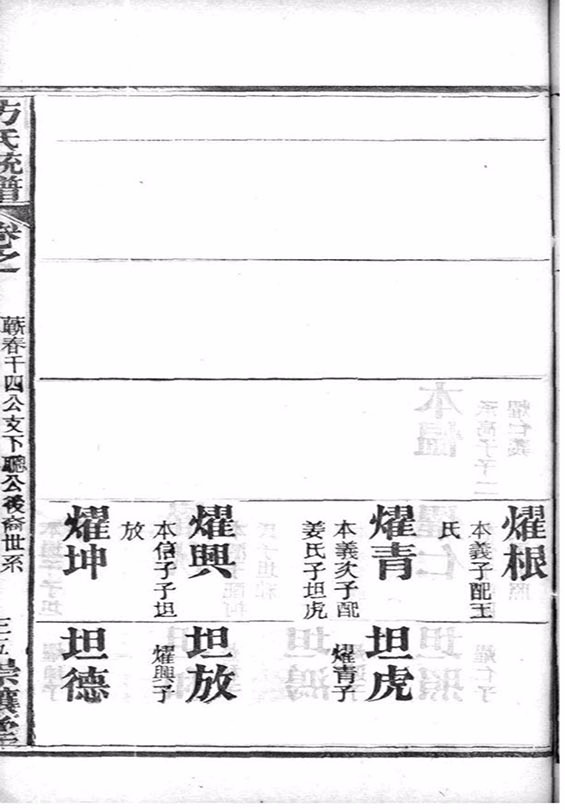 耀根
本義子配王
氏
耀青
本義次子配
姜氏子坦虎
耀興
本信子子坦
放
耀坤
坦虎
耀青子
坦放
耀興子
坦德
方氏統譜
卷之一
蘄春千四公支下聰公後裔世系